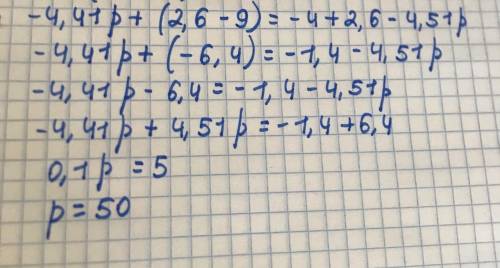 -4,41p + (2,6-9) = -4+2,6-4,51p
-4,41p + (-6,4) = -1,4-4,51p
-4,41p - 6,4 = -1,4-4,51p
-4,41p + 4,51p = -1,4+6,4
0,1p = 5
p = 50